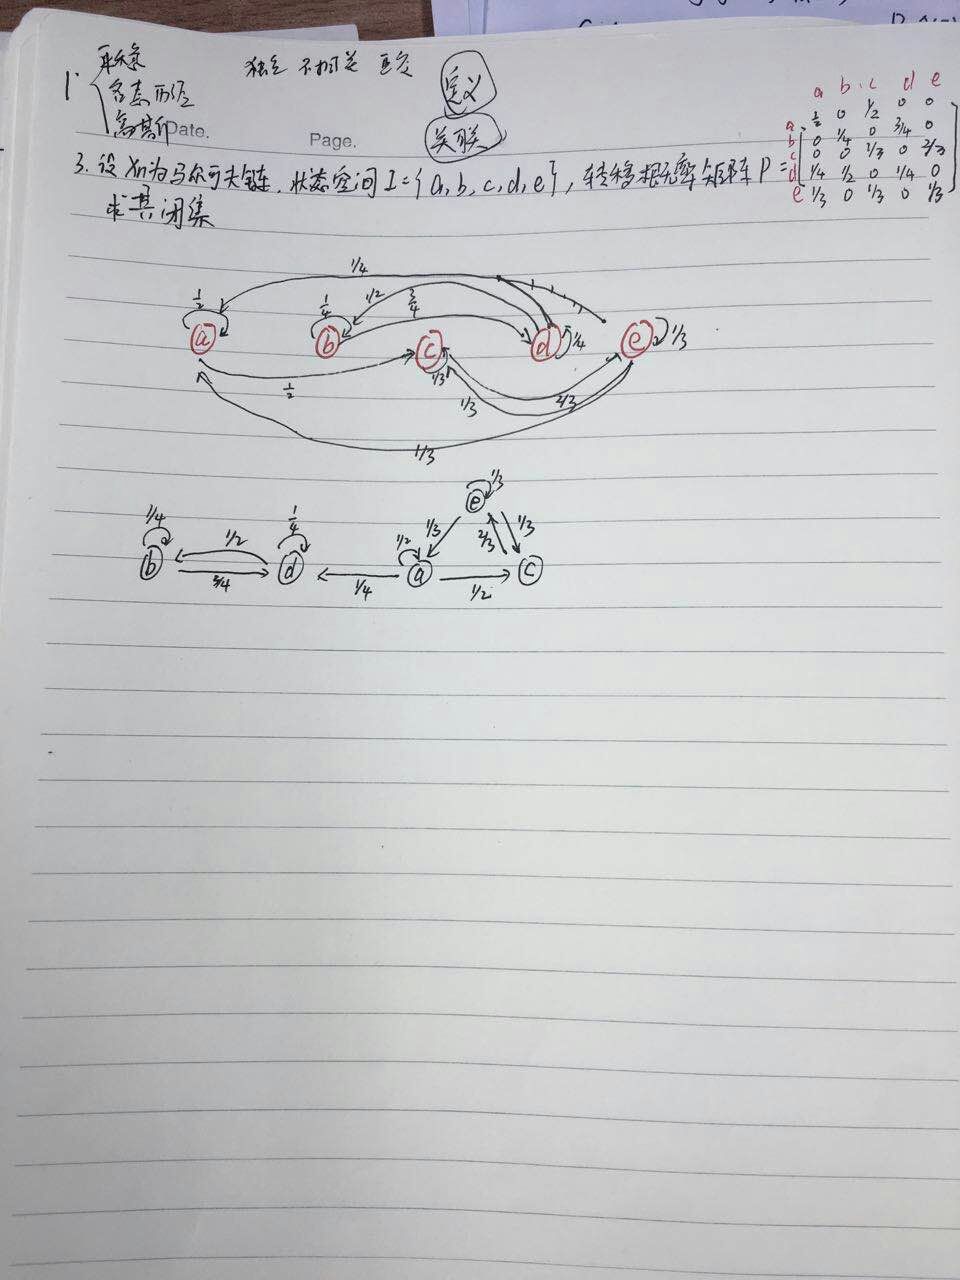 1. 平稳
各态历经
高斯
独立 不相关 正交
定义
关联
Date.
Page.
3. 设Xn为马尔可夫链，状态空间I={a,b,c,d,e}，转移概率矩阵P=
求其闭集
a b c d e
a 1/2 0 1/2 0 0
b 0 1/4 0 3/4 0
c 0 0 1/3 0 2/3
d 1/4 1/2 0 1/4 0
e 1/3 0 1/3 0 1/3
1/4
1/2 1/4 1/2 3/4
a b c d 1/4 e 1/3
1/2 1/3 1/3 2/3
1/3
1/3
e
1/4 1/2 1/4 1/2 1/3 2/3 1/3
b d a c
3/4 1/4 1/2